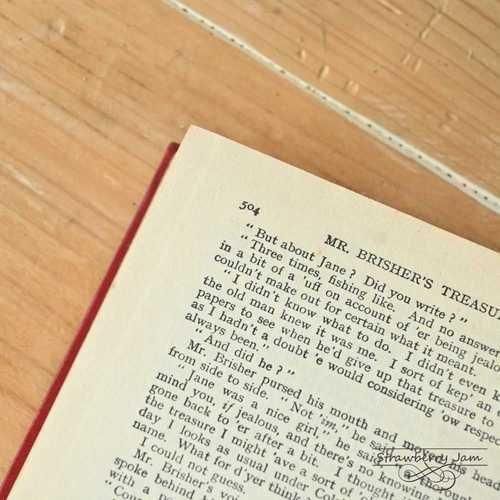 504
MR. BRISHER'S TREASU
"But about Jane? Did you write?"
"Three times, fishing like. And no answer
in a bit of a 'uff on account of 'er being jealo
couldn't make out for certain what it meant.
"I didn't know what to do. I didn't even k
the old man knew it was me. I sort of kep' an
papers to see when he'd give up that treasure to
as I hadn't a doubt 'e would considering 'ow respec
always been."
"And did he?"
Mr. Brisher pursed his mouth and moved his head
from side to side. "Not 'im," he said.
"Jane was a nice girl," he said, "a thorou
mind you, if jealous, and there's no knowi
gone back to 'er after a bit. I thought
the treasure I might 'ave a sort of
day I looks as usual under Col
name. What for d'yer think
I could not guess.
Mr. Brisher's voi
spoke behind
with a p
"Coun
Strawberry Jam